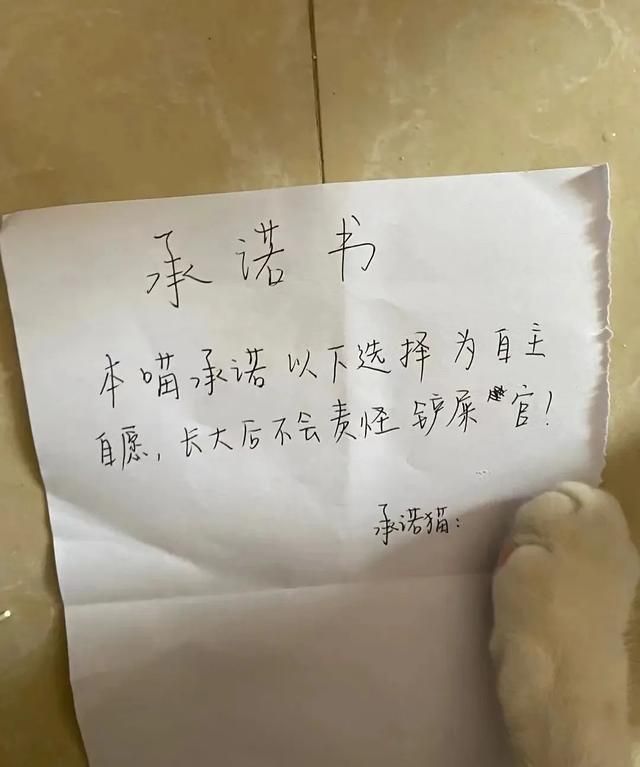 承诺书
本喵承诺以下选择为自主
自愿,长大后不会责怪铲屎官!
承诺猫: